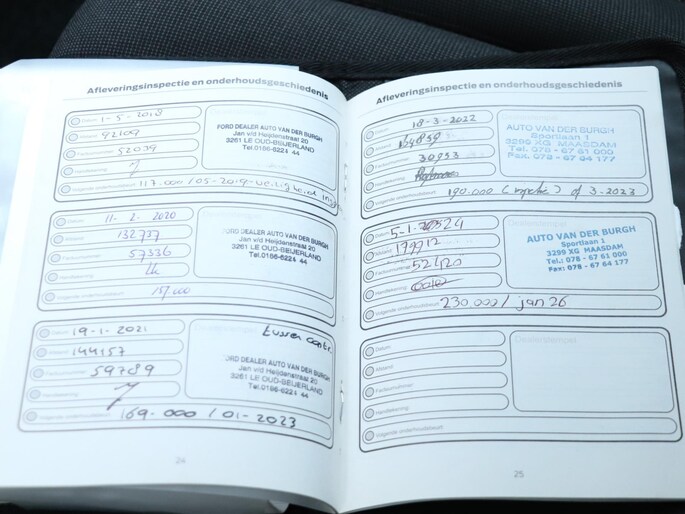 Afleveringsinspectie en onderhoudsgeschiedenis
Datum 1-5-2018
Kilstand 92109
Factuurnummer 52039
Handtekening
Volgende onderhoudsbeurt 117.000 / 05-2019
FORD DEALER AUTO VAN DER BURGH
Jan v/d Heijdenstraat 20
3261 LE OUD-BEIJERLAND
Tel.0186-6224 44
Datum 11-2-2020
Kilstand 132757
Factuurnummer 57336
Handtekening
Volgende onderhoudsbeurt 157.000
FORD DEALER AUTO VAN DER BURGH
Jan v/d Heijdenstraat 20
3261 LE OUD-BEIJERLAND
Tel.0186-6224 44
Datum 19-1-2021
Kilstand 144157
Factuurnummer 59789
Handtekening
Volgende onderhoudsbeurt 169.000 / 01-2023
Dealerstempel
tussen contr.
FORD DEALER AUTO VAN DER BURGH
Jan v/d Heijdenstraat 20
3261 LE OUD-BEIJERLAND
Tel.0186-6224 44
24
Afleveringsinspectie en onderhoudsgeschiedenis
Datum 18-3-2022
Kilstand
Factuurnummer 30953
Handtekening
Volgende onderhoudsbeurt 190.000 (inspectie) of 3-2023
AUTO VAN DER BURGH
Sportlaan 1
3299 XG MAASDAM
Tel.: 078 - 67 61 000
Fax: 078 - 67 64 177
Datum
Kilstand 199912
Factuurnummer 52420
Handtekening
Volgende onderhoudsbeurt 230 000 / jan 26
AUTO VAN DER BURGH
Sportlaan 1
3299 XG MAASDAM
Tel.: 078 - 67 61 000
Fax: 078 - 67 64 177
Datum
Kilstand
Factuurnummer
Handtekening
Volgende onderhoudsbeurt
Dealerstempel
25